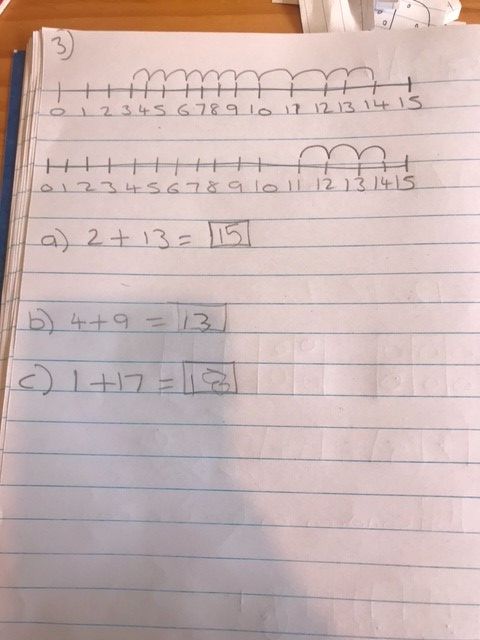 3)
0 1 2 3 4 5 6 7 8 9 10 11 12 13 14 15
0 1 2 3 4 5 6 7 8 9 10 11 12 13 14 15
a) 2 + 13 = 15
b) 4 + 9 = 13
c) 1 + 17 = 18